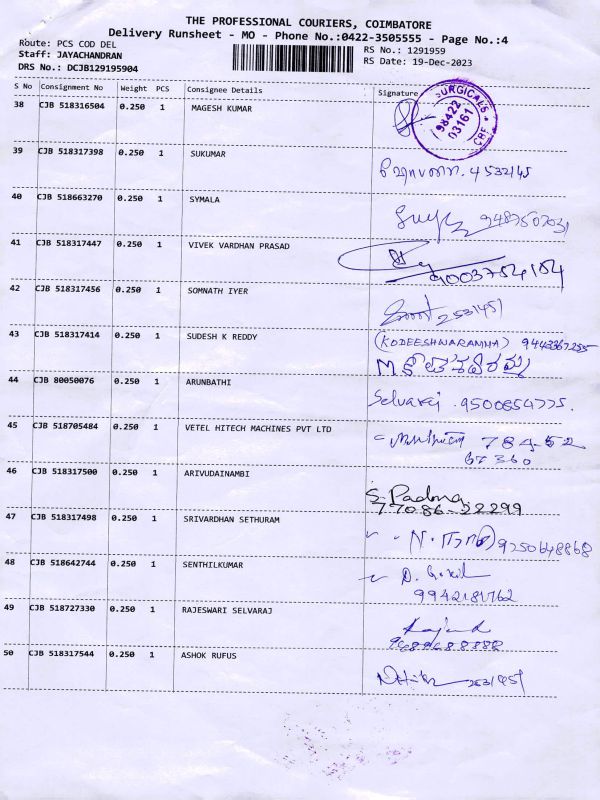 THE PROFESSIONAL COURIERS, COIMBATORE
Delivery Runsheet - MO - Phone No.:0422-3505555 - Page No.:4
Route: PCS COD DEL
RS No.: 1291959
Staff: JAYACHANDRAN
RS Date: 19-Dec-2023
DRS No.: DCJB129195904
S No Consignment No Weight PCS Consignee Details Signature
38 CJB 518316504 0.250 1 MAGESH KUMAR
SURGICALS * CBE *
98422
03161
39 CJB 518317398 0.250 1 SUKUMAR
4532145
40 CJB 518663270 0.250 1 SYMALA
9487507031
41 CJB 518317447 0.250 1 VIVEK VARDHAN PRASAD
9003784184
42 CJB 518317456 0.250 1 SOMNATH IYER
2531451
43 CJB 518317414 0.250 1 SUDESH K REDDY (KODEESHWARAMMA) 9443367255
44 CJB 80050076 0.250 1 ARUNBATHI
Selvaraj . 9500854775.
45 CJB 518705484 0.250 1 VETEL HITECH MACHINES PVT LTD
784-52
67360
46 CJB 518317500 0.250 1 ARIVUDAINAMBI
S. Padma
77086-22299
47 CJB 518317498 0.250 1 SRIVARDHAN SETHURAM
9250648868
48 CJB 518642744 0.250 1 SENTHILKUMAR
9942181762
49 CJB 518727330 0.250 1 RAJESWARI SELVARAJ
50 CJB 518317544 0.250 1 ASHOK RUFUS